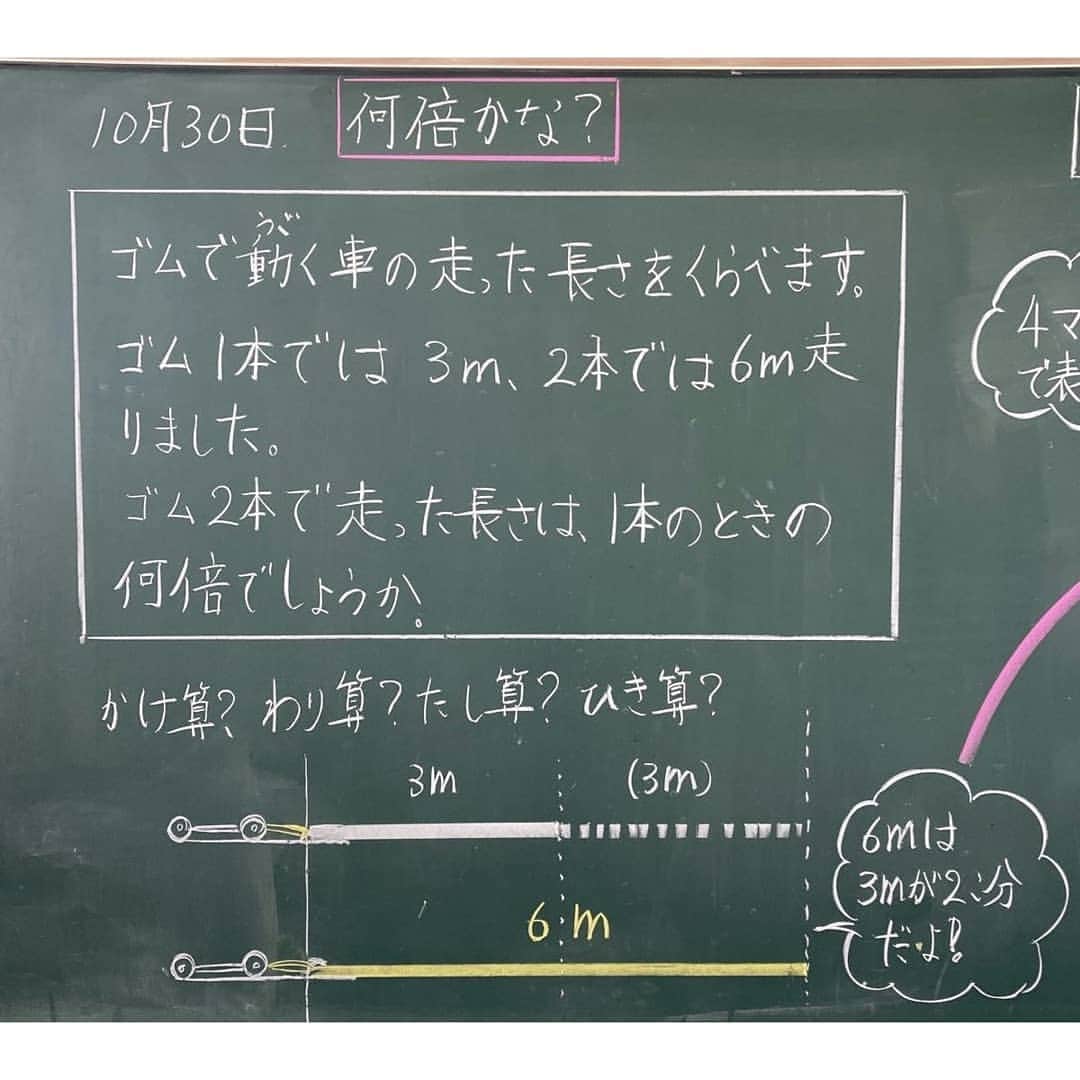 10月30日 何倍かな?
うご
ゴムで動く車の走った長さをくらべます。
ゴム1本では 3m、2本では6m走
りました。
ゴム2本で走った長さは、1本のときの
何倍でしょうか。
かけ算? わり算? たし算? ひき算?
3m (3m)
6m
6mは
3mが2つ分
だよ!
4マ
で表